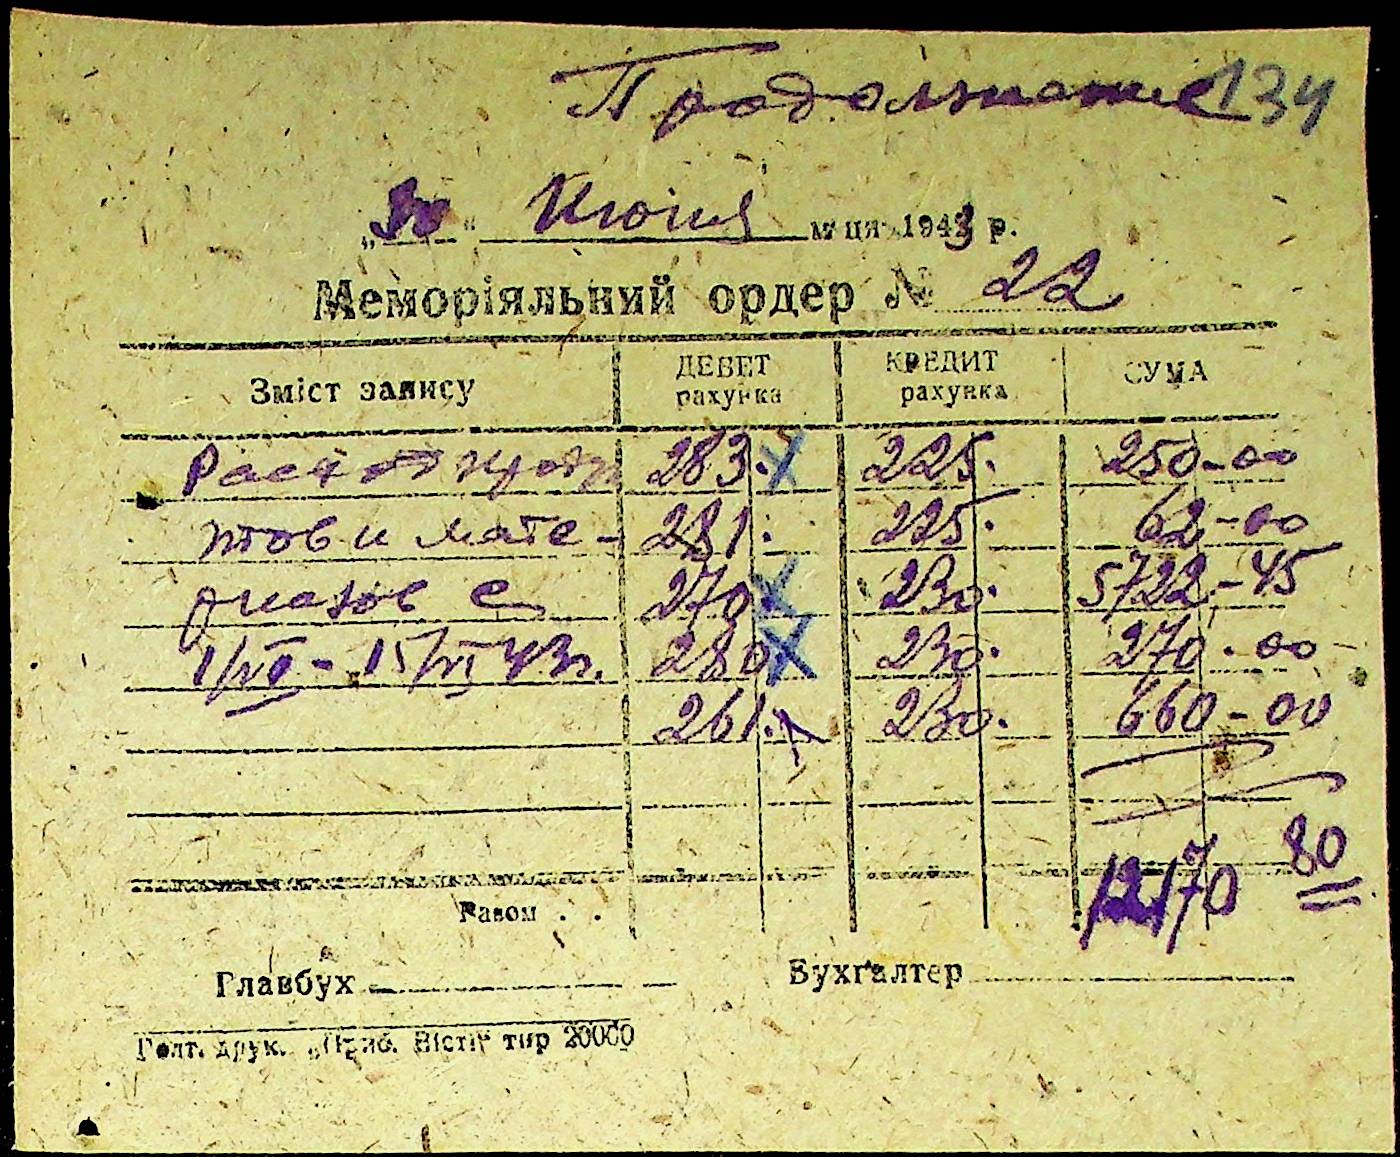 Продолжение 134
„30" Июня м-ця 1943 р.
Меморіяльний ордер № 22
Зміст запису ДЕБЕТ рахунка КРЕДИТ рахунка СУМА
283. 225. 250-00
тов и мате- 281. 225. 62-00
риалов с 270. 230. 5722-45
1/VI - 15/VI 43 г. 280. 230. 270-00
261. 230. 660-00
12170 80
Разом . .
Главбух Бухгалтер
Голт. друк. „Приб. Вісті" тир 20000